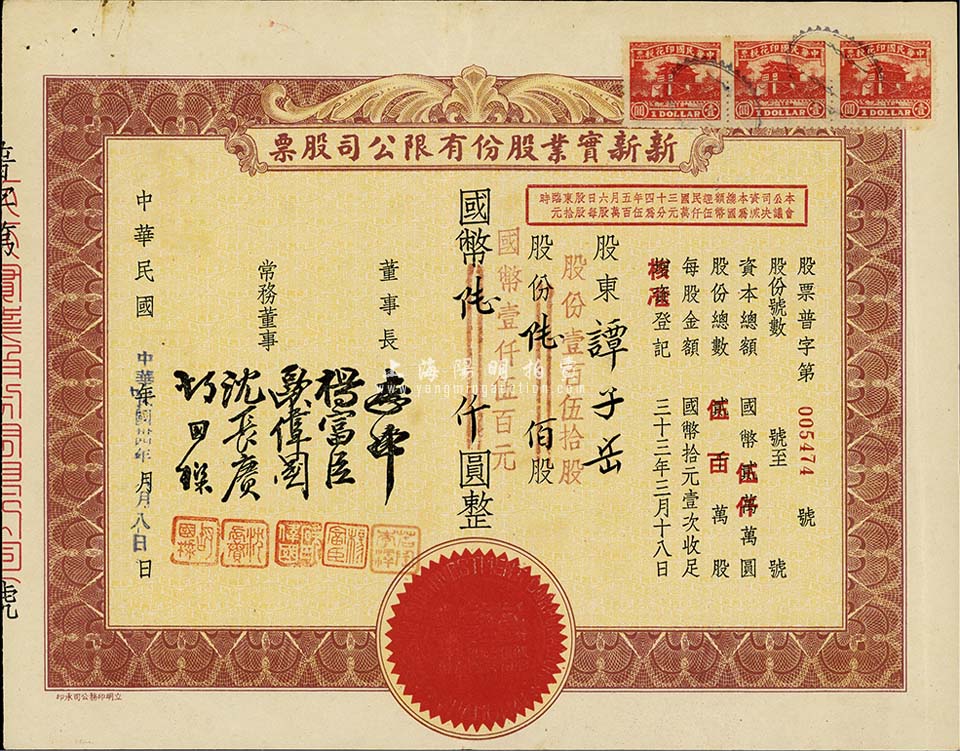 中華民國印花稅票
壹圓
1 DOLLAR
中華民國印花稅票
壹圓
1 DOLLAR
中華民國印花稅票
壹圓
1 DOLLAR
新新實業股份有限公司股票
本公司資本總額經民國三十四年五月六日股東臨時
會議決減爲國幣伍仟萬元分爲伍百萬股每股拾元
股票普字第 005474 號
股份號數 號至 號
資本總額 國幣 伍仟 萬圓
股份總數 伍百萬股
每股金額 國幣拾元壹次收足
核准登記 三十三年三月十八日
股東 譚子岳
股份壹百伍拾股
股份 佰股
國幣壹仟伍百元
國幣 仟圓整
董事長
常務董事
楊富臣
沈長賡
中華民國 年 月 日
中華民國 年 月八日
上海陽明拍賣
www.yangmingauction.com
立明印務公司承印